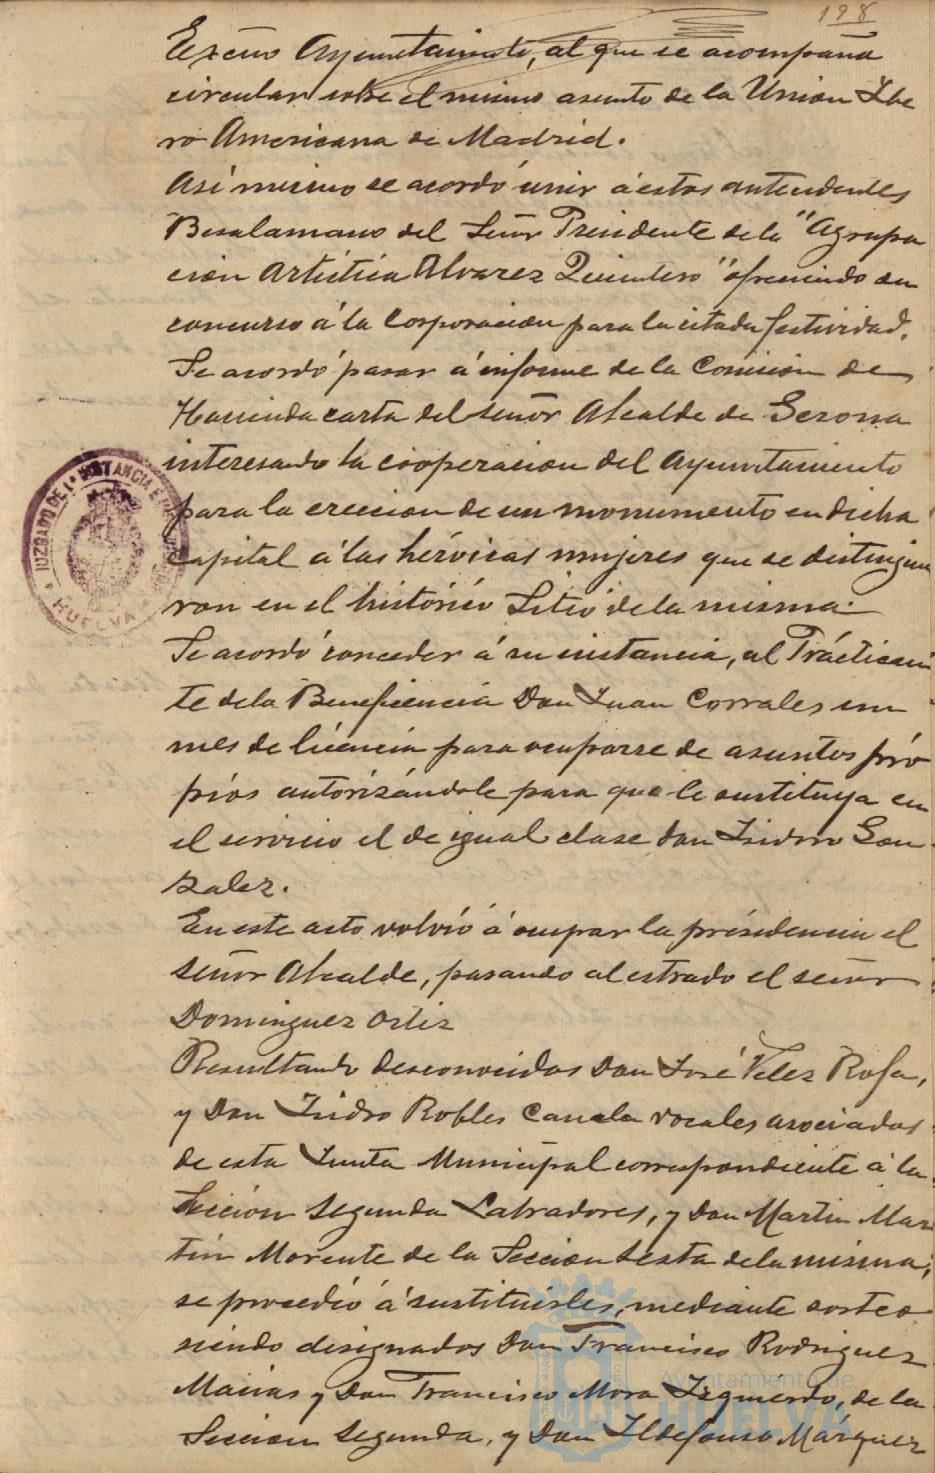 198
Excmo Ayuntamiento, al que se acompaña
circular sobre el mismo asunto de la Union Ibe
ro Americana de Madrid.
Asi mismo se acordó unir á estos antecedentes
Besalamano del Señor Presidente de la "Agrupa
cion Artistica Alvarez Quintero" ofreciendo su
concurso á la Corporacion para la citada festividad.
Se acordó pasar á informe de la Comision de
Hacienda carta del señor Alcalde de Gerona
interesando la cooperacion del Ayuntamiento
para la ereccion de un monumento en dicha
Capital á las heróicas mujeres que se distinguie
ron en el histórico Sitio de la misma.
Se acordó conceder á su instancia, al Practican
te de la Beneficencia Don Juan Corrales un
mes de licencia para ocuparse de asuntos pró
pios autorizándole para que le sustituya en
el servicio el de igual clase Don Isidro Gon
zalez.
En este acto volvió á ocupar la présidencia el
señor Alcalde, pasando al estrado el señor
Dominguez Ortiz
Resultando desconocidos Don José Velez Rofa,
y Don Isidro Robles Canela vocales asociados
de esta Junta Municipal correspondiente á la
Sección Segunda Labradores, y Don Martin Mar
tin Morente de la Seccion Sesta de la misma,
se procedió á sustituirles, mediante sorteo
siendo designados Don Francisco Rodriguez
Macias y Don Francisco Mora Izquierdo, de la
Seccion Segunda, y Don Ildefonso Márquez
JUZGADO DE 1ª INSTANCIA E
HUELVA
Ayuntamiento de
HUELVA